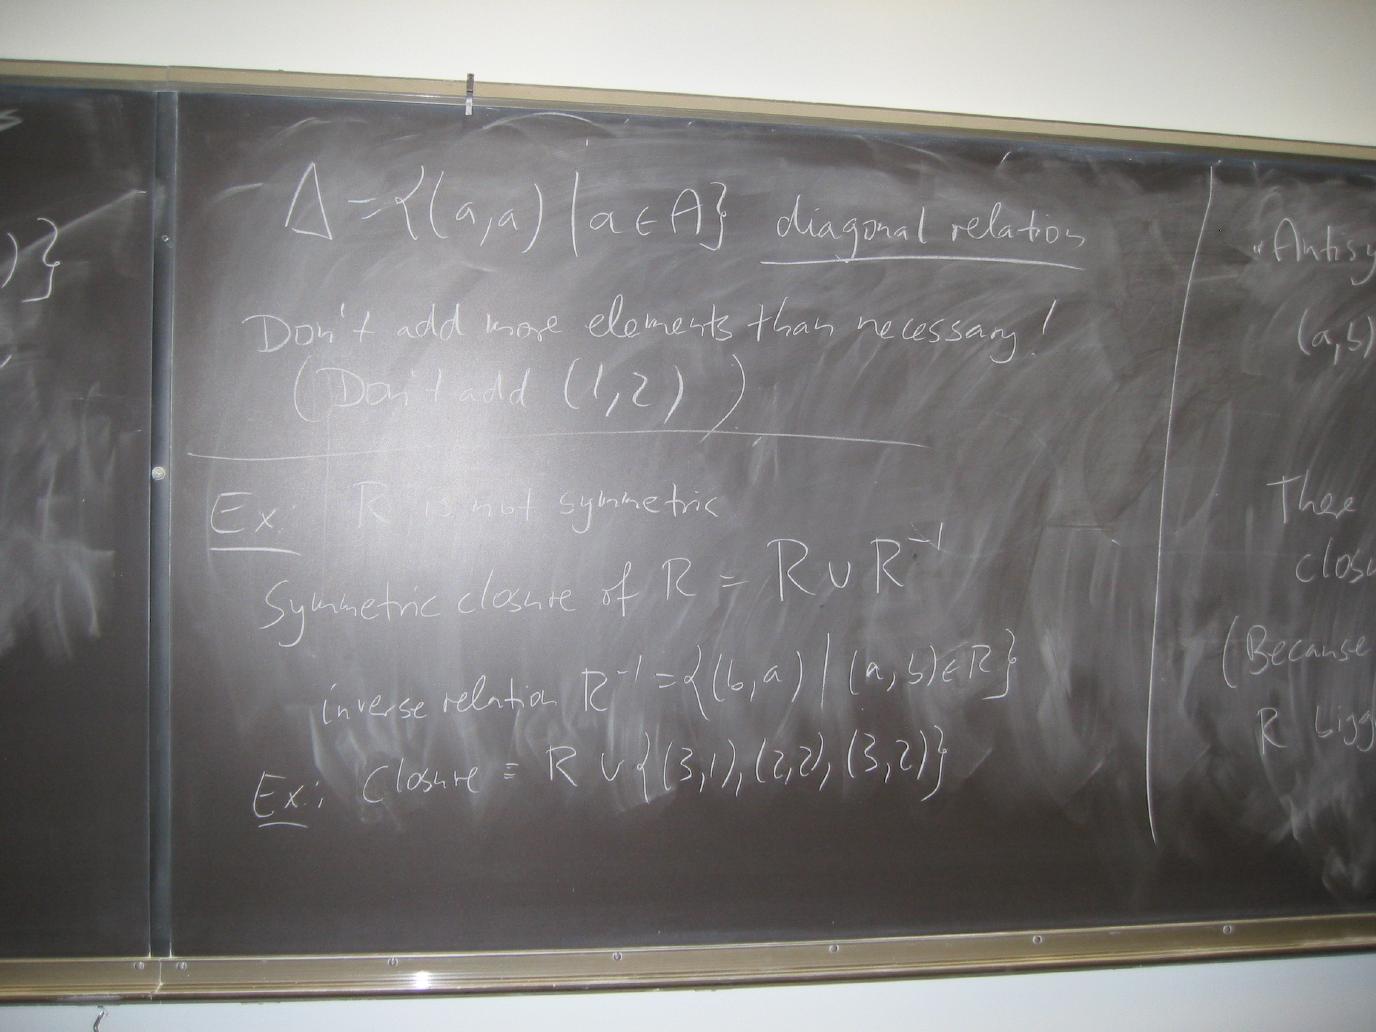 )}
Δ = {(a,a) | a ∈ A} diagonal relation
Don't add more elements than necessary!
(Don't add (1,2) )
Ex: R is not symmetric
Symmetric closure of R = R ∪ R⁻¹
inverse relation R⁻¹ = {(b,a) | (a,b) ∈ R}
Ex: Closure = R ∪ {(3,1), (2,2), (3,2)}
"Antisy
(a,b)
There
closu
(Because
R